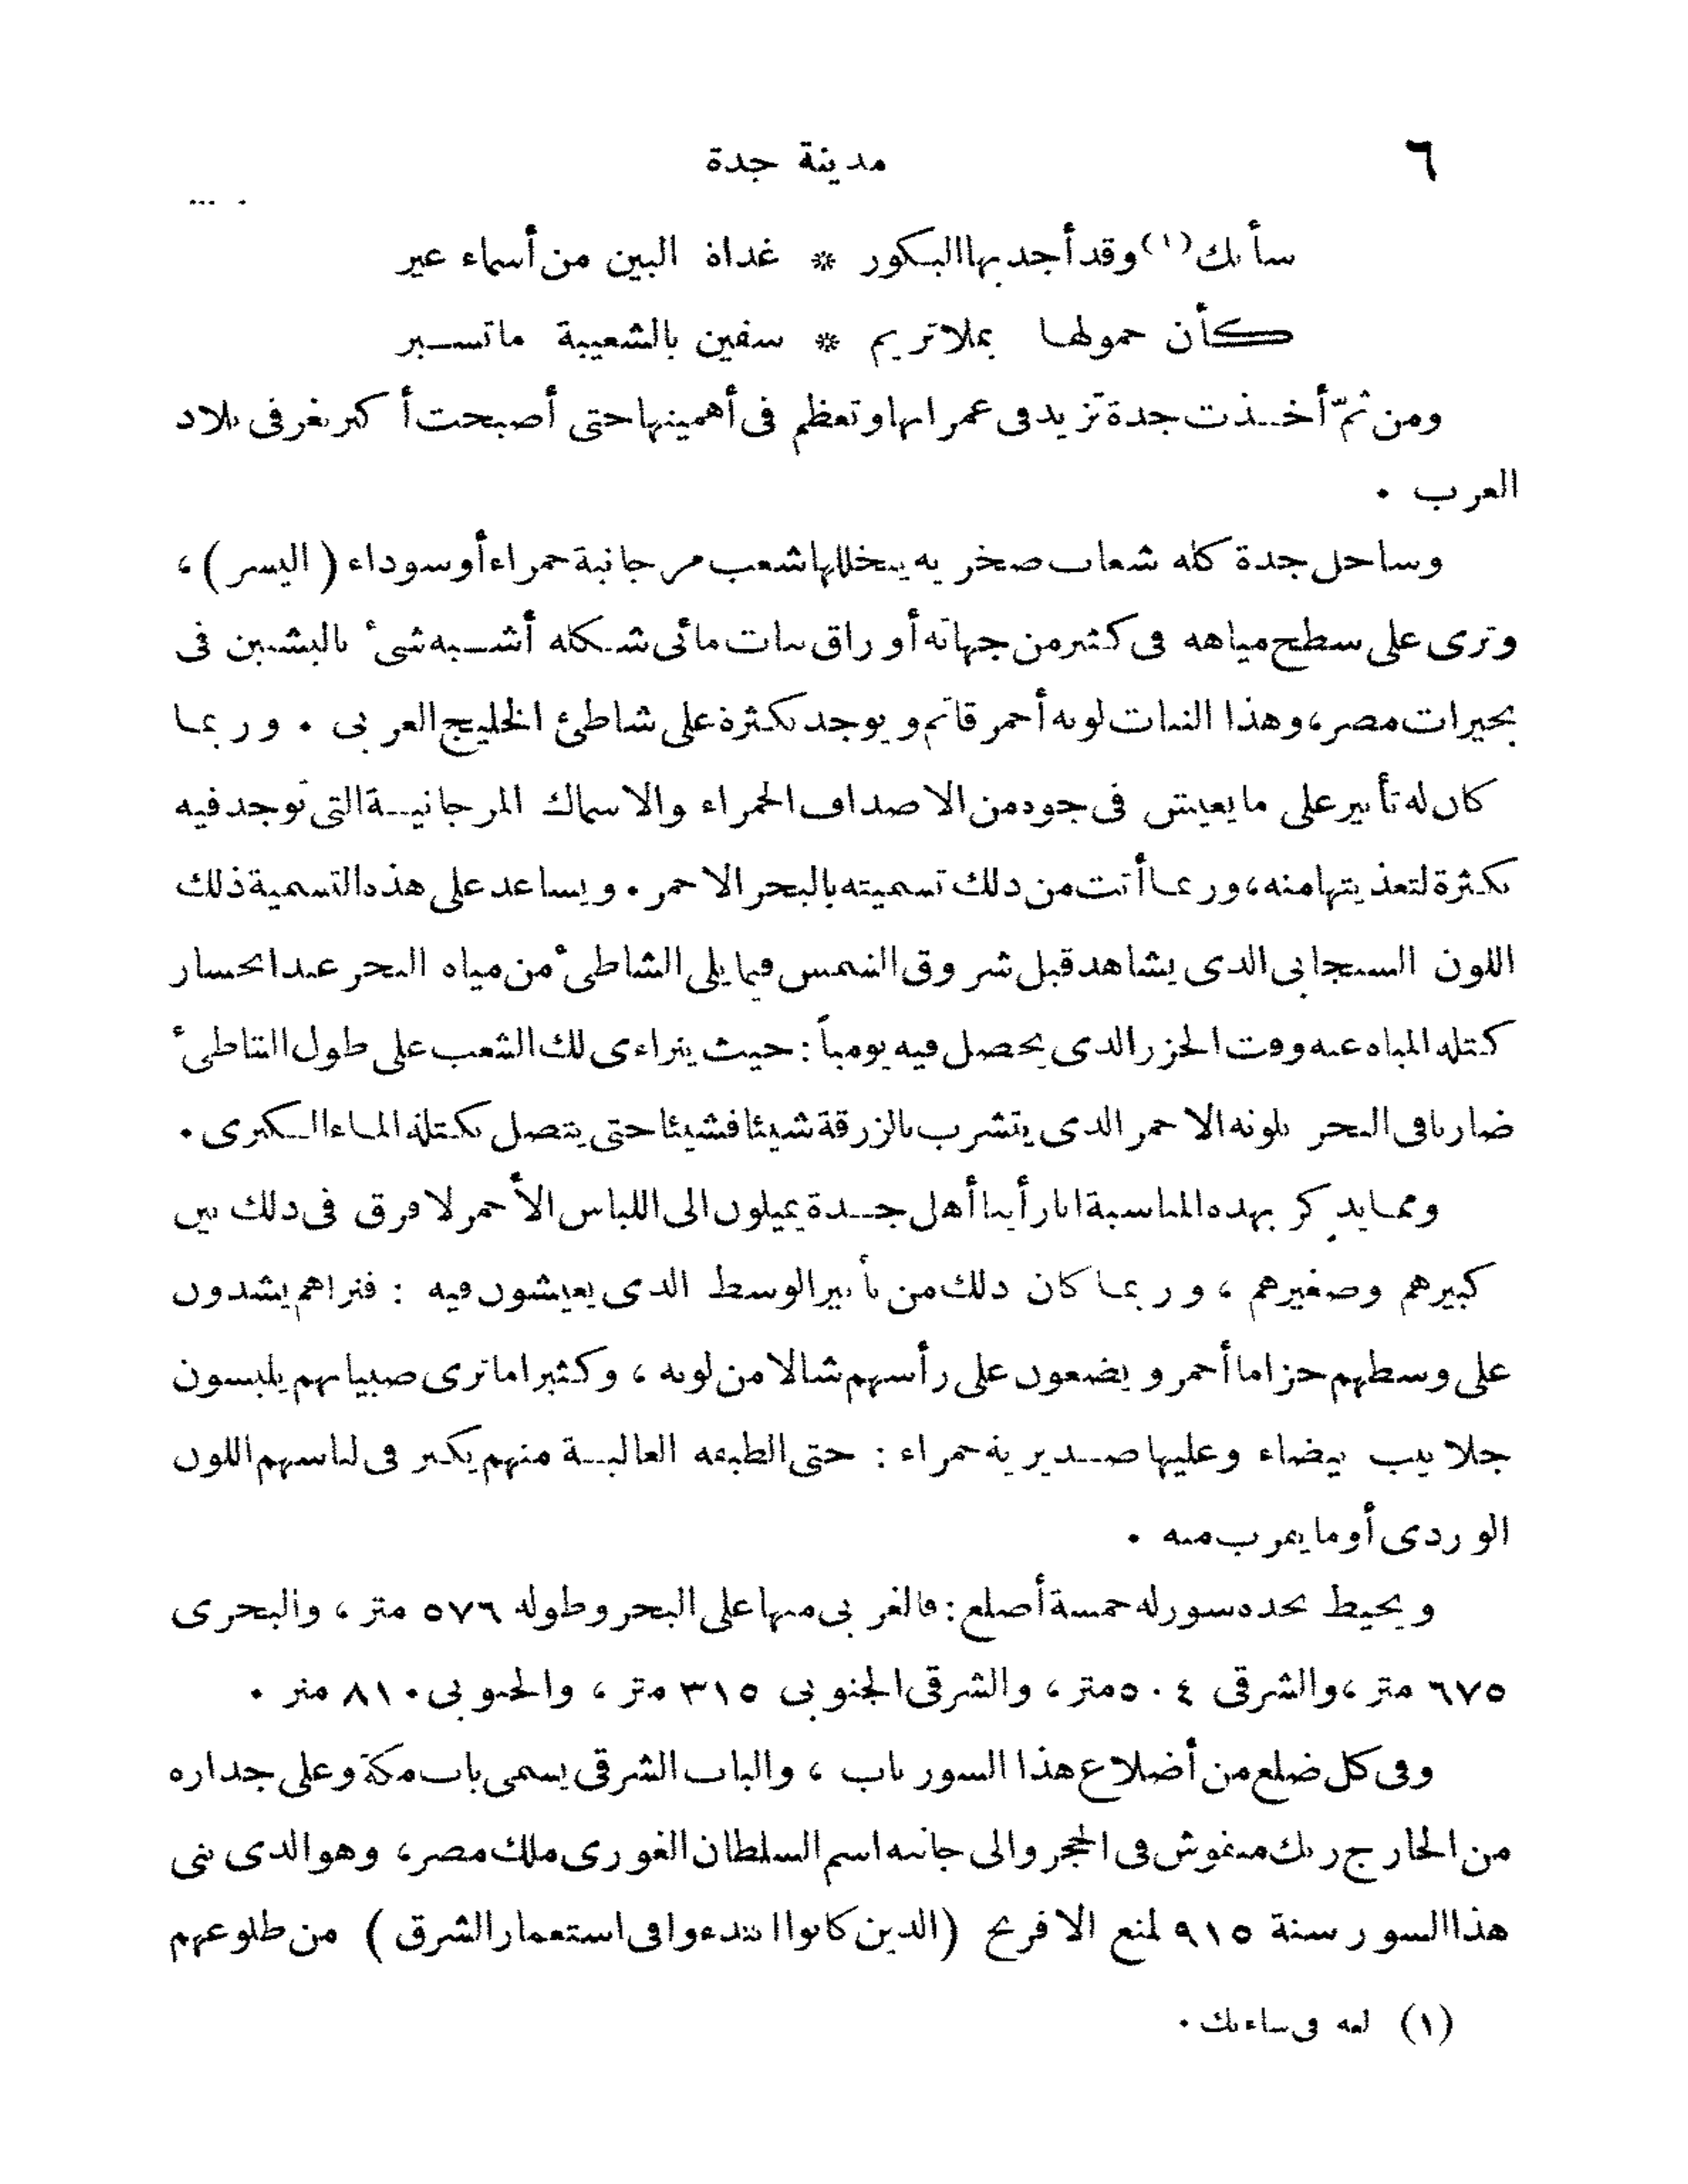 ٦ مدينة جدة
سأتك(١) وقد أجد بها البكور * غداة البين من أسماء عير
كأن حمولها بملا تريم * سفين بالشعيبة ما تسير
ومن ثمّ أخذت جدة تزيد فى عمرانها وتعظم فى أهميتها حتى أصبحت أكبر ثغر فى بلاد
العرب .
وساحل جدة كله شعاب صخرية يتخللها شعب مرجانية حمراء أو سوداء ( اليسر ) ،
وترى على سطح مياهه فى كثير من جهاته أوراق نبات مائى شكله أشبه شىء بالبشنين فى
بحيرات مصر، وهذا النبات لونه أحمر قاتم ويوجد بكثرة على شاطئ الخليج العربى . وربما
كان له تأثير على ما يعيش فى جوده من الاصداف الحمراء والاسماك المرجانية التى توجد فيه
بكثرة لتغذيتها منه، وربما أتت من ذلك تسميته بالبحر الاحمر . ويساعد على هذه التسمية ذلك
اللون السنجابى الذى يشاهد قبل شروق الشمس فيما يلى الشاطىء من مياه البحر عند انحسار
كتلة المياه عنه وقت الجزر الذى يحصل فيه يومياً : حيث يتراءى لك الشعب على طول الشاطىء
ضاربا فى البحر بلونه الاحمر الذى يتشرب بالزرقة شيئا فشيئا حتى يتصل بكتلة الماء الكبرى .
ومما يذكر بهذه المناسبة انا رأينا أهل جدة يميلون الى اللباس الأحمر لا فرق فى ذلك بين
كبيرهم وصغيرهم ، وربما كان ذلك من تأثير الوسط الذى يعيشون فيه : فتراهم يشدون
على وسطهم حزاما أحمر ويضعون على رأسهم شالا من لونه ، وكثيرا ما ترى صبيانهم يلبسون
جلابيب بيضاء وعليها صديرية حمراء : حتى الطبقة العالية منهم يكثر فى لباسهم اللون
الوردى أو ما يقرب منه .
ويحيط بجده سور له خمسة أضلع : فالغربى منها على البحر وطوله ٥٧٦ متر ، والبحرى
٦٧٥ متر ، والشرقى ٥٠٤ متر ، والشرقى الجنوبى ٣١٥ متر ، والجنوبى ٨١٠ متر .
وفى كل ضلع من أضلاع هذا السور باب ، والباب الشرقى يسمى باب مكة وعلى جداره
من الخارج رنك منقوش فى الحجر والى جانبه اسم السلطان الغورى ملك مصر، وهو الذى بنى
هذا السور سنة ٩١٥ لمنع الافرنج (الذين كانوا ابتدءوا فى استعمار الشرق ) من طلوعهم
(١) لغة فى ساءتك .